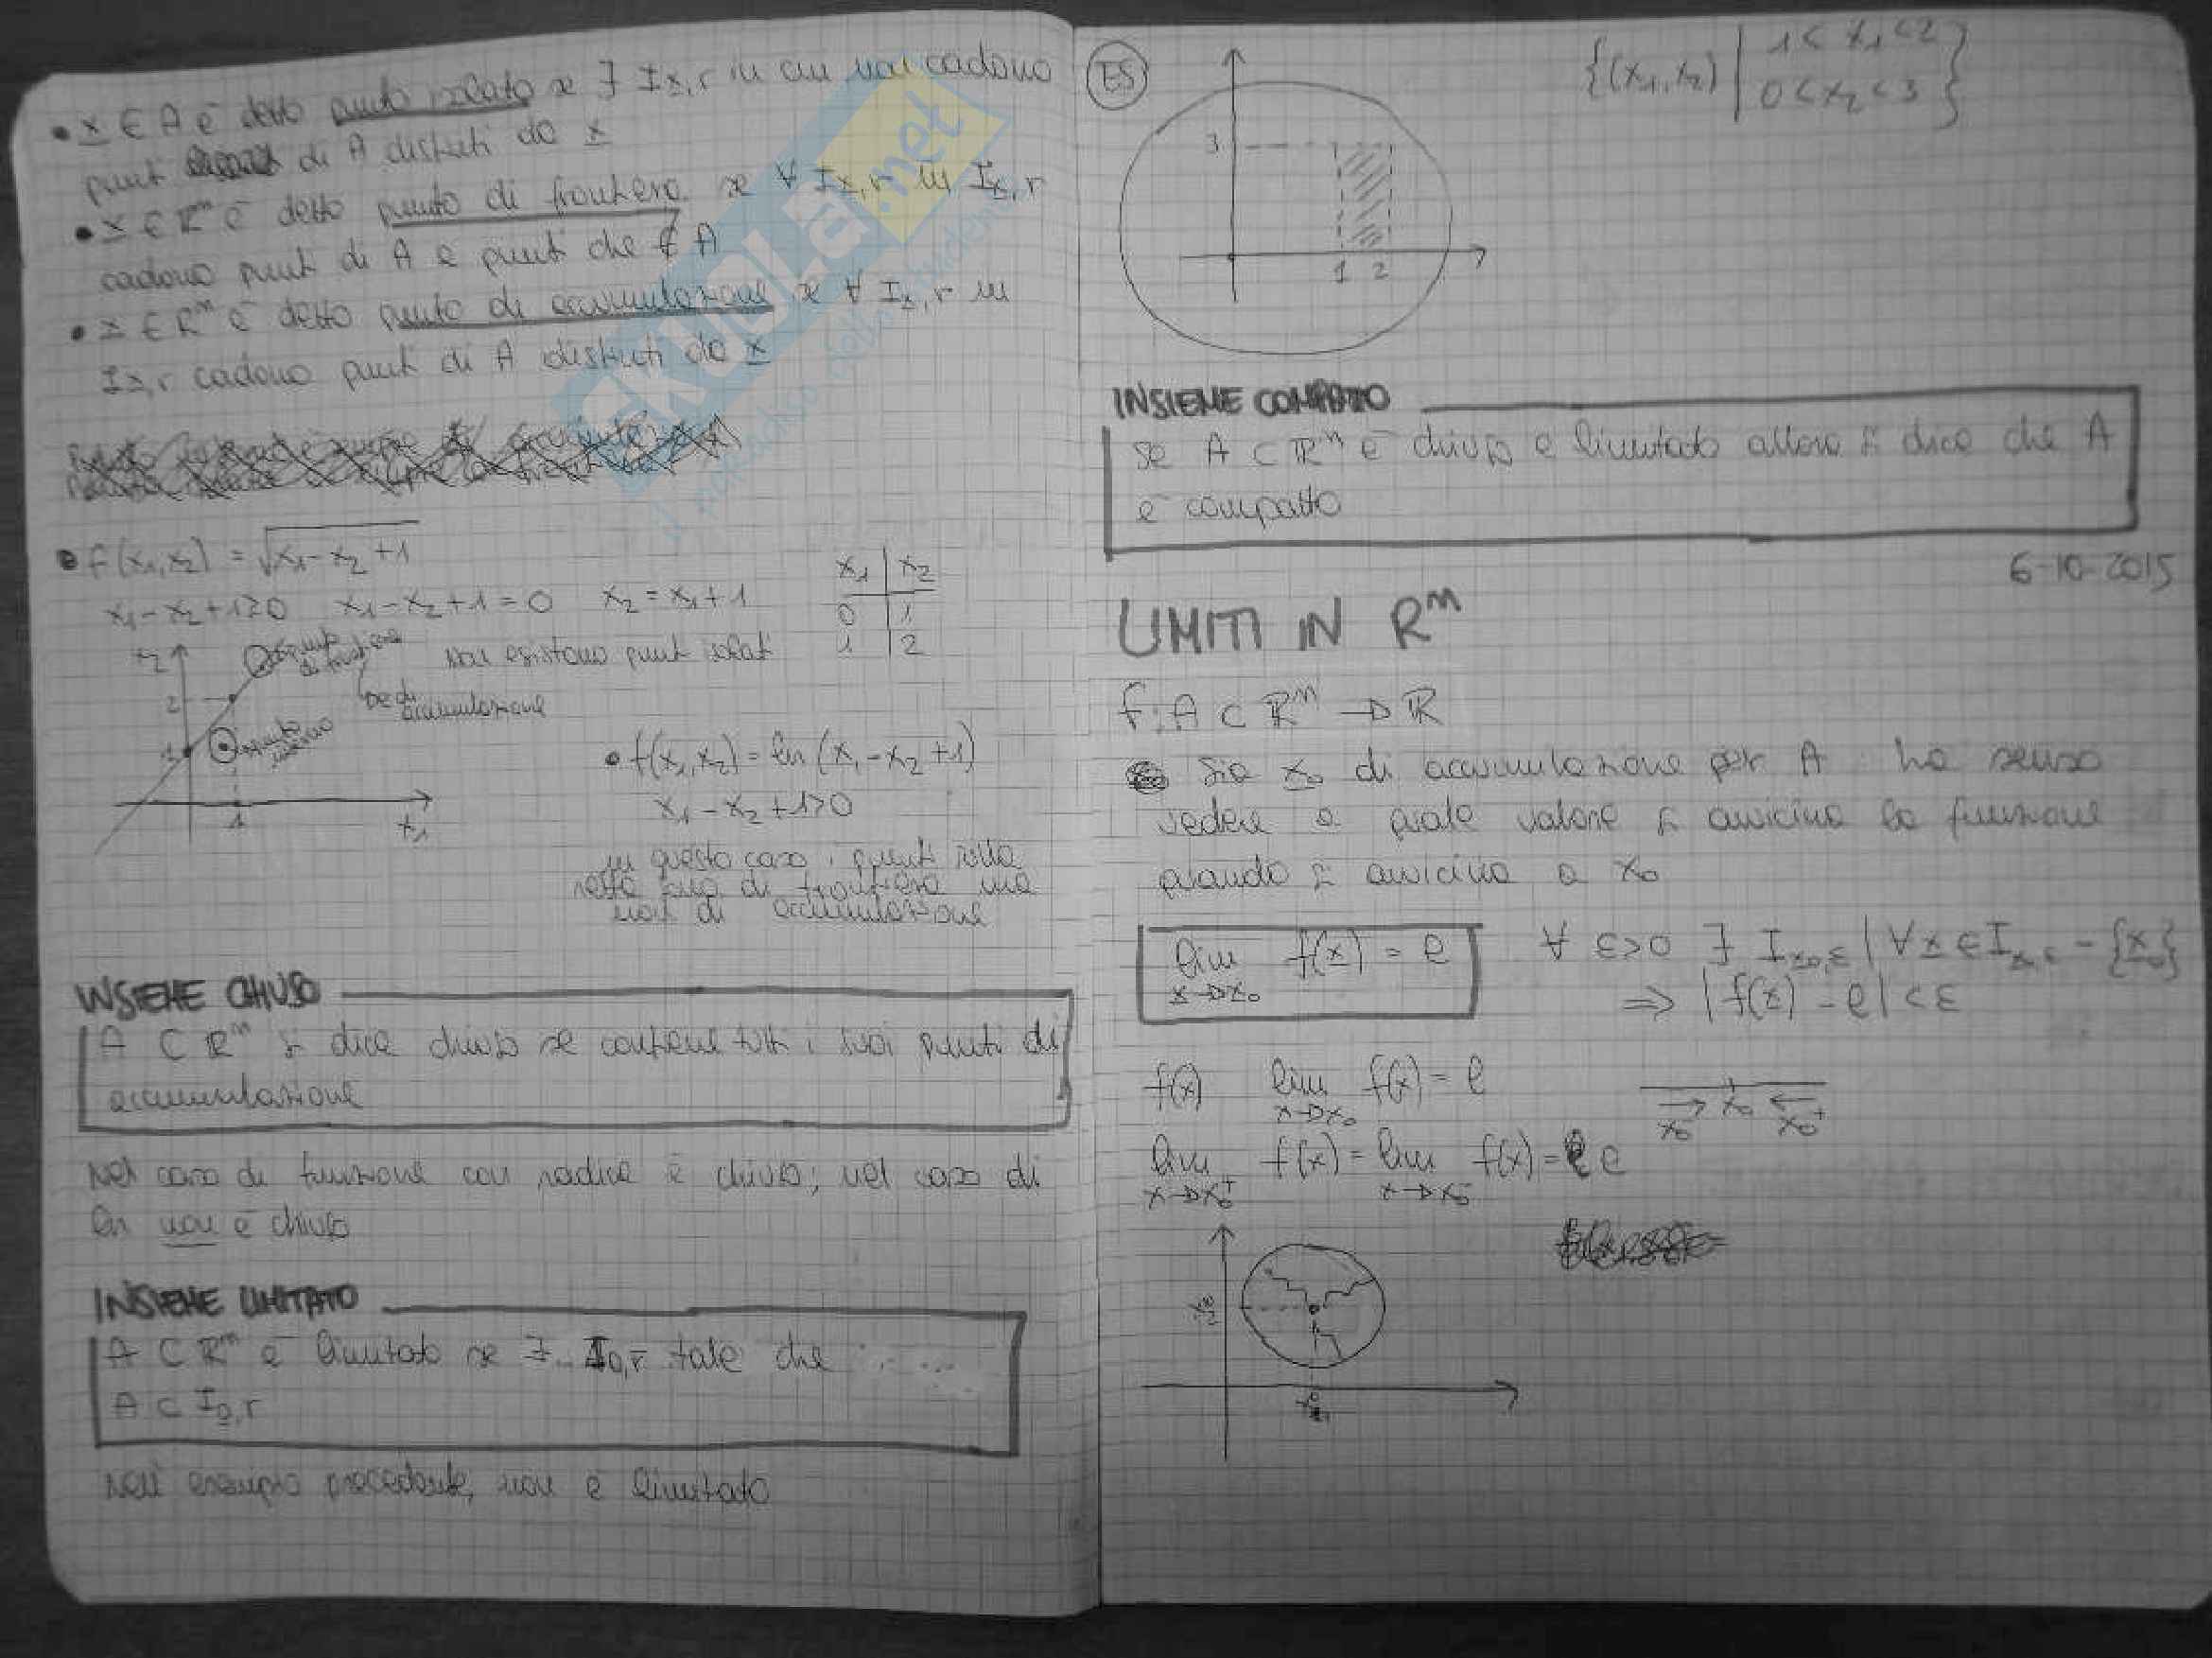 • x ∈ A è detto punto isolato se ∃ Ix,r in cui non cadono
punti di A distinti da x
• x ∈ Rⁿ è detto punto di frontiera se ∀ Ix,r in Ix,r
cadono punti di A e punti che ∉ A
• x ∈ Rⁿ è detto punto di accumulazione se ∀ Ix,r in
Ix,r cadono punti di A distinti da x
• f(x₁,x₂) = √(x₁-x₂+1)
x₁-x₂+1≥0 x₁-x₂+1=0 x₂=x₁+1
x₁ | x₂
0 | 1
1 | 2
non esistono punti isolati
x₂
punto di frontiera
e di accumulazione
2
punto interno
1
1
x₁
• f(x₁,x₂) = ln(x₁-x₂+1)
x₁-x₂+1>0
in questo caso i punti sulla
retta sono di frontiera ma
non di accumulazione
INSIEME CHIUSO
A ⊂ Rⁿ si dice chiuso se contiene tutti i suoi punti di
accumulazione
Nel caso di funzione con radice è chiuso; nel caso di
ln non è chiuso
INSIEME LIMITATO
A ⊂ Rⁿ è limitato se ∃ I0,r tale che
A ⊂ I0,r
Nell'esempio precedente, non è limitato
ES
{(x₁,x₂) | 1<x₁<2
0<x₂<3}
3
1 2
INSIEME COMPATTO
Se A ⊂ Rⁿ è chiuso e limitato allora si dice che A
è compatto
6-10-2015
LIMITI IN Rⁿ
f: A ⊂ Rⁿ → R
Sia x₀ di accumulazione per A ha senso
vedere a quale valore si avvicina la funzione
quando si avvicina a x₀
lim x→x₀ f(x) = l ∀ ε>0 ∃ Ix₀,ε | ∀x ∈ Ix₀,ε - {x₀}
⇒ |f(x) - l| < ε
f(x) lim x→x₀ f(x) = l
x₀
x₀⁻ x₀⁺
lim x→x₀⁺ f(x) = lim x→x₀⁻ f(x) = l
x₂⁰
x₁⁰
SKUOLA.net
il paradiso dello studente